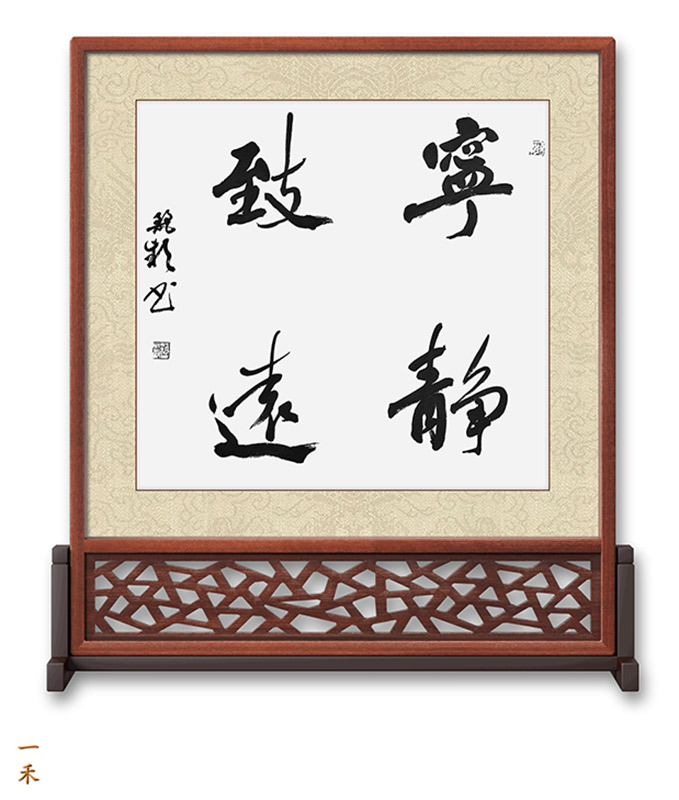 寧靜
致遠
书
一禾